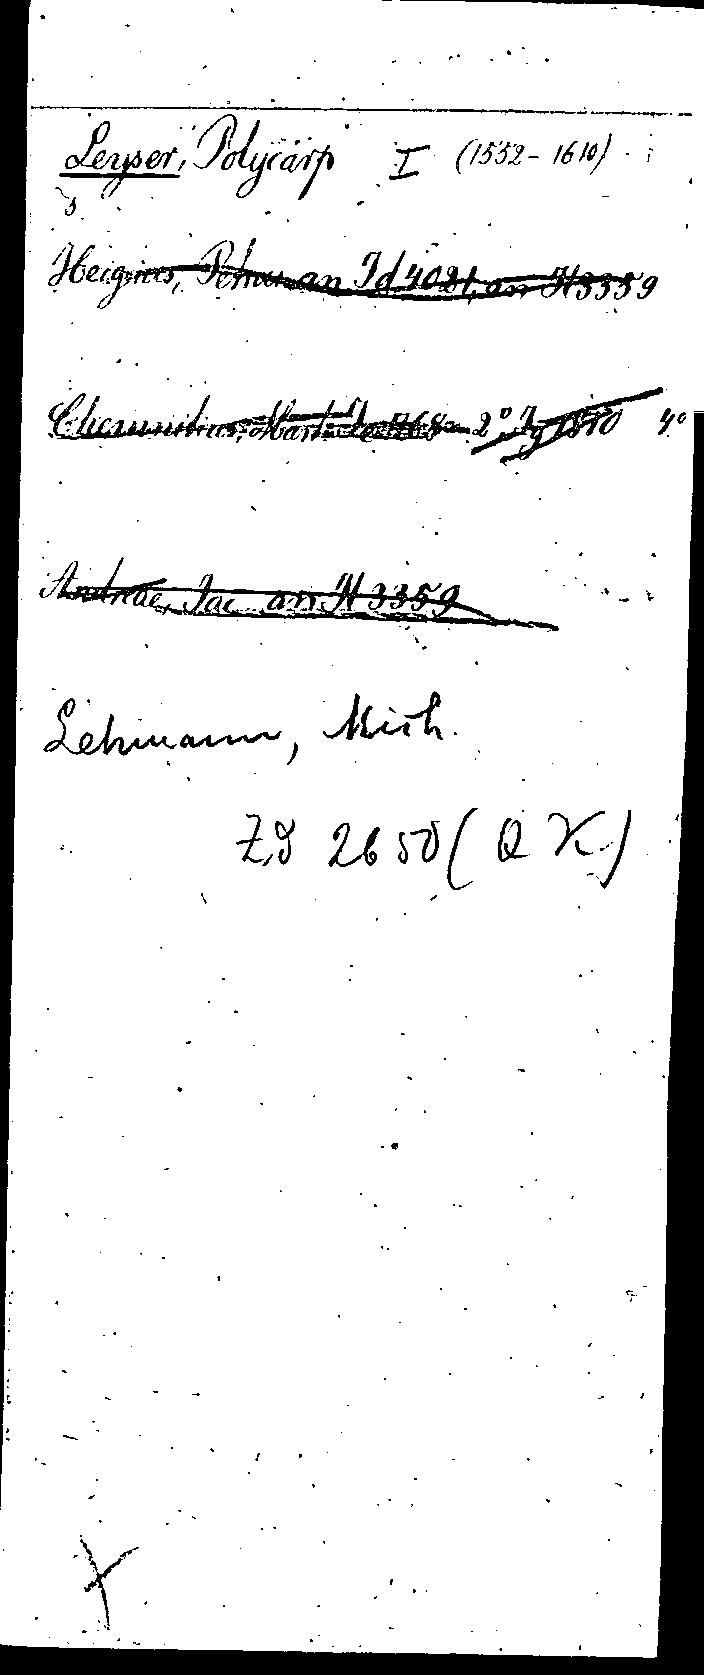 Leyser, Polycarp I (1552-1610)
s
Heigius, Petrus an Id 4021, an H 3359
Chemnitius, Mart. 2°, Ig 1510 4°
Andreae, Jac an H 3359
Lehmann, Mich.
ZS 2650 (QK)